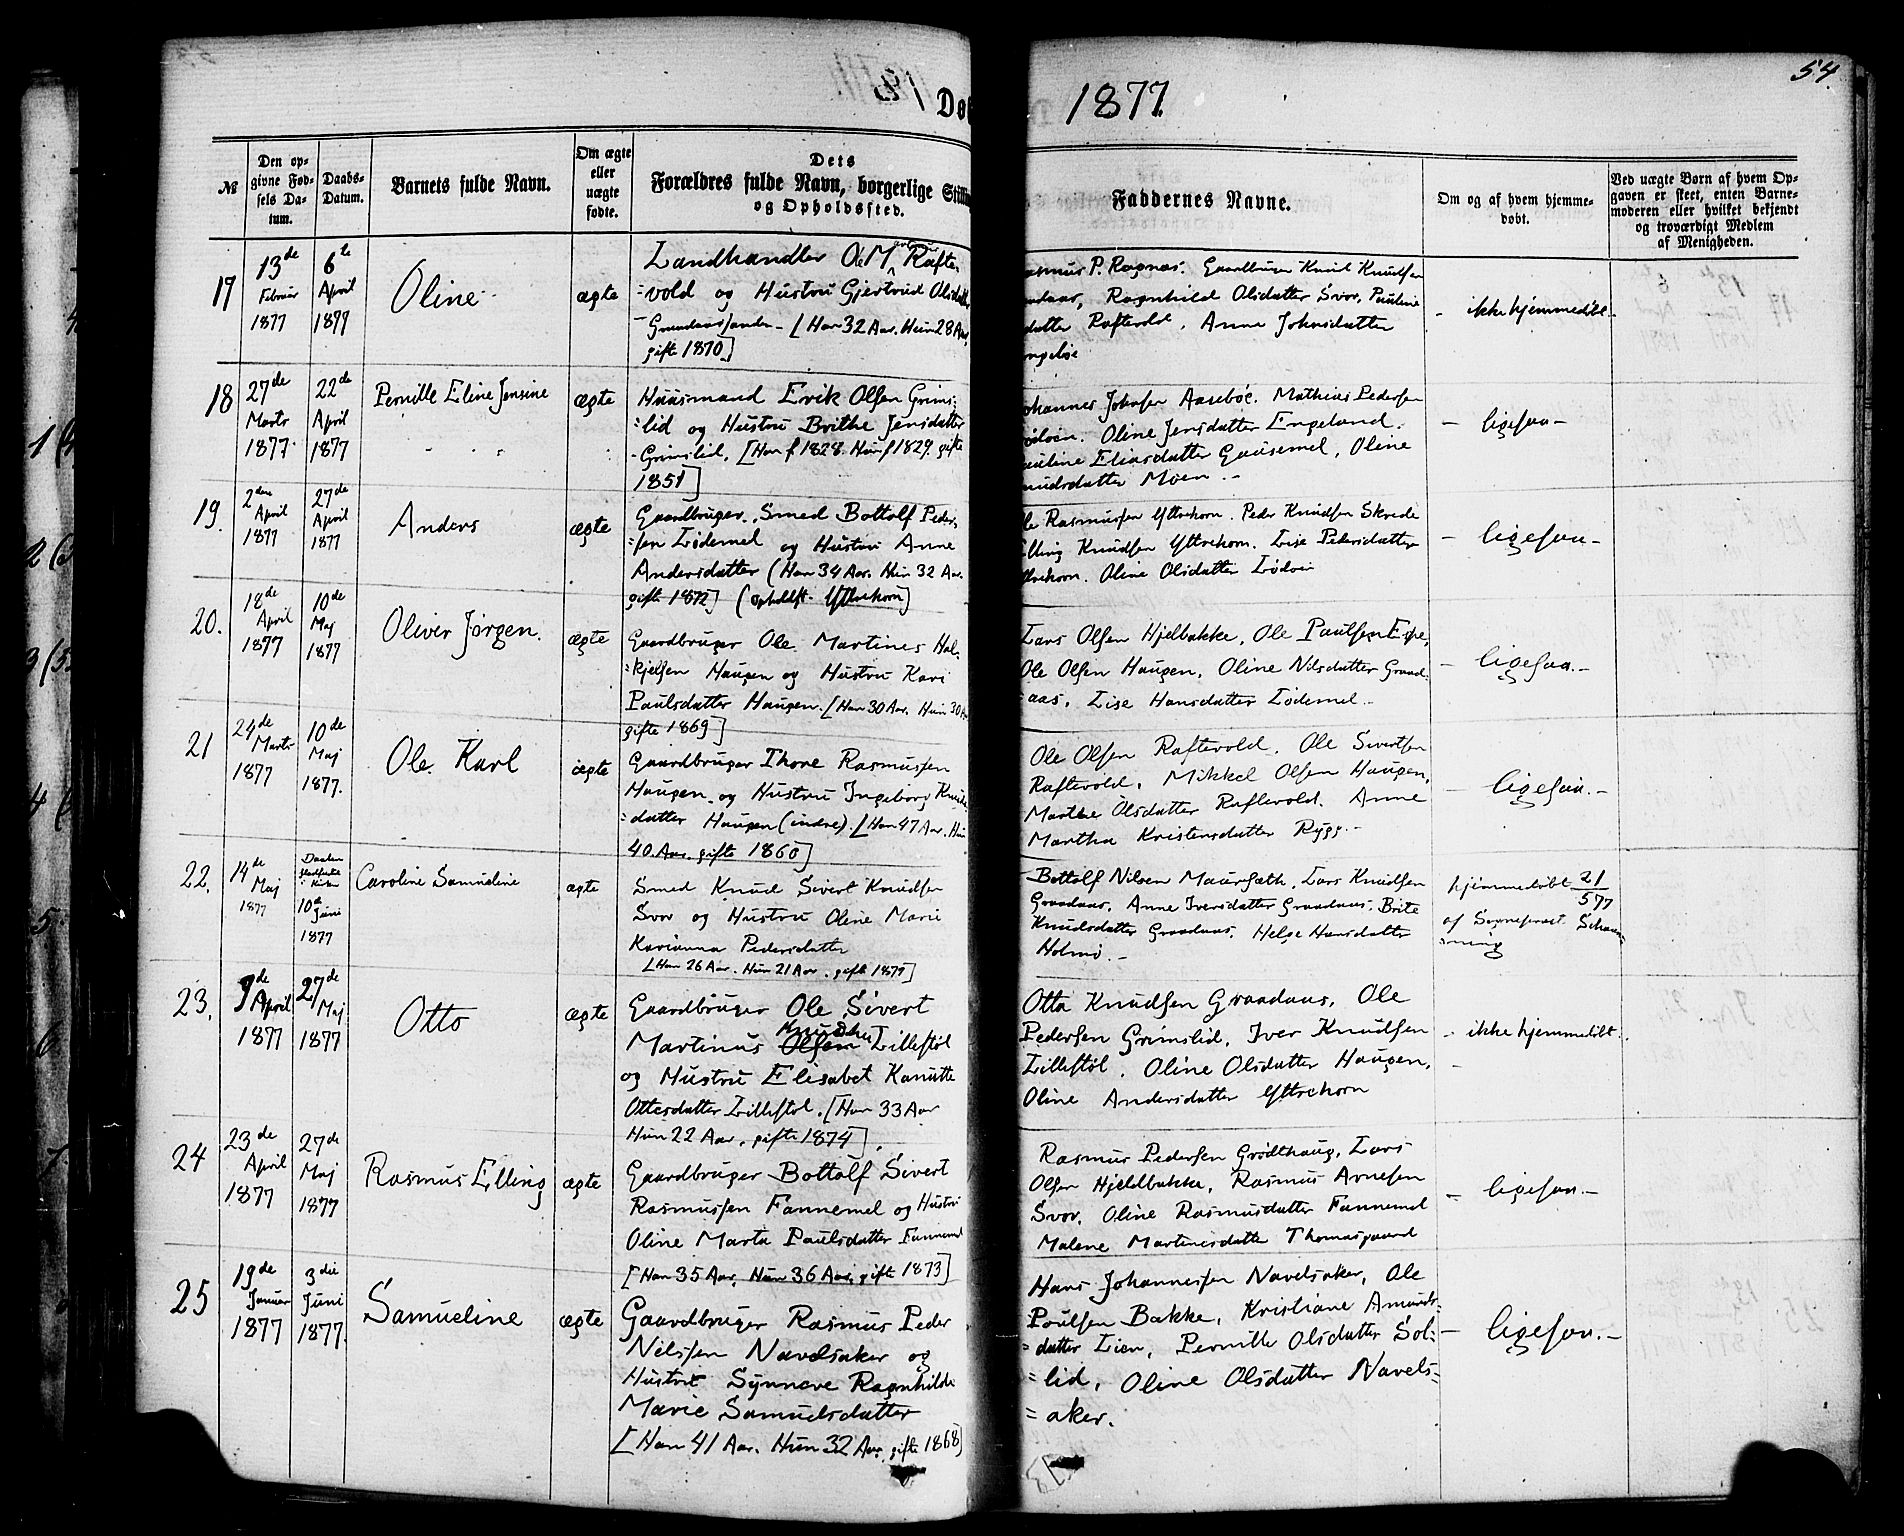 1877.
54.
Døb
№
Den op-
givne Fød-
sels Da-
tum.
Daabs-
Datum.
Barnets fulde Navn.
Om ægte
eller
uægte
fødte.
Dets
Forældres fulde Navn, borgerlige Stilling
og Opholdssted.
Faddernes Navne.
Om og af hvem hjemme-
døbt.
Ved uægte Børn af hvem Op-
gaven er skeet, enten Barne-
moderen eller hvilket bekjendt
og troværdigt Medlem
af Menigheden.
17
13de
Februar
1877
6te
April
1877
Oline
ægte
Landhandler Ole M Rafte-
=vold og Hustru Gjertrud Olsdatt
[Han 32 Aar, Hun 28 Aar,
gifte 1870]
asmus P. Ragnas. Gaardbruger Knut Knudsen
Ragnhild Olsdatter Svor, Pauline
datter Raftevold, Anne Johnsdatter
- ikke hjemmedöbt -
18
27de
Marts
1877.
22de
April
1877
Pernille Eline Jensine
ægte
Huusmand Erik Olsen Grims-
=lid og Hustru Brithe Jensdatter
Grimslid, [Han f 1828. Hun f 1829. gifte
1851]
ohannes Johnsen Aarebøe. Mathias Pedersen
Oline Jensdatter Engeland.
auline Eliasdatter Gausemel, Oline
nudsdatter Moen.-
- ligesaa -
19.
2den
April
1877
27de
April
1877
Anders
ægte
Gaardbruger, Smed Bottolf Peder-
=sen Lødemel og Hustru Anne
Andersdatter (Han 34 Aar. Hun 32 Aar.
gifte 1872] (opholdst. Yttrehorn)
le Rasmussen Yttrehorn. Peder Knudsen Skrede
lling Knudsen Yttrehorn. Lise Pedersdatter
ttrehorn. Oline Olsdatter Lødøen
- ligesaa -
20.
18de
April
1877
10de
Maj
1877
Oliver Jørgen.
ægte
Gaardbruger Ole Martines Hal-
=kjelsen Haugen og Hustru Kari
Paulsdatter Haugen. [Han 30 Aar. Hun 30 A
gifte 1869]
Lars Olsen Hjelbakke, Ole Paulsen Espe,
Ole Olsen Haugen, Oline Nilsdatter Graad-
=aas, Lise Hansdatter Lødemel -
- ligesaa. -
21
24de
Marts
1877
10de
Maj
1877.
Ole Karl
ægte
Gaardbruger Thore Rasmussen
Haugen og Hustru Ingeborg Knuds
=datter Haugen (indre). [Han 47 Aar. Hun
40 Aar. gifte 1860]
Ole Olsen Raftevold. Ole Sivertsen
Raftevold, Mikkel Olsen Haugen,
Marthe Olsdatter Raftevold. Anne
Martha Kristensdatter Rygg. -
- ligesaa. -
22.
14de
Maj
1877
Daaben
stadfæstet
i Kirken
10de
Juni
1877
Caroline Samueline
ægte
Smed Knud Sivert Knudsen
Svor og Hustru Oline Marie
Karianna Pedersdatter
[Han 26 Aar. Hun 21 Aar. gifte 1877]
Bottolf Nilsen Maursæth, Lars Knudsen
Graadaas, Anne Iversdatter Graadaas. Brite
Knudsdatter Graadaas, Helge Hansdatter
Holmø. -
hjemmedöbt 21/5 77
af Sogneprest Schaan-
=ning
23.
9de
April
1877
27de
Maj
1877
Otto
ægte
Gaardbruger Ole Sivert
Knudsen
Martinus Olsen Lillestöl
og Hustru Elisabet Kanutte
Ottesdatter Lillestøl. [Han 33 Aar
Hun 22 Aar, gifte 1874]
Otto Knudsen Graadaas, Ole
Pedersen Grimslid, Iver Knudsen
Lillestöl. Oline Olsdatter Haugen,
Oline Andersdatter Yttrehorn
- ikke hjemmedöbt.
24
23de
April
1877
27de
Maj
1877
Rasmus Elling
ægte
Gaardbruger Bottolf Sivert
Rasmussen Fannemel og Hustru
Oline Marta Paulsdatter Fannemel
[Han 35 Aar, Hun 36 Aar, gifte 1873]
Rasmus Pedersen Grødthaug, Lars
Olsen Hjeldbakke, Rasmus Arnesen
Svor, Oline Rasmusdatter Fannemel
Malene Martinesdatter Thomasgaard
- ligesaa. -
25
19de
Januar
1877
3die
Juni
1877.
Samueline
ægte
Gaardbruger Rasmus Peder
Nilssen Navelsaker og
Hustru Synneve Ragnhilde
Marie Samuelsdatter
[Han 41 Aar. Hun 32 Aar, gifte 1868]
Hans Johannessen Navelsaker, Ole
Poulsen Bakke, Kristiane Amunds-
=datter Lien, Pernille Olsdatter Sol-
=lid, Oline Olsdatter Navels-
=aker.
- ligesaa. -